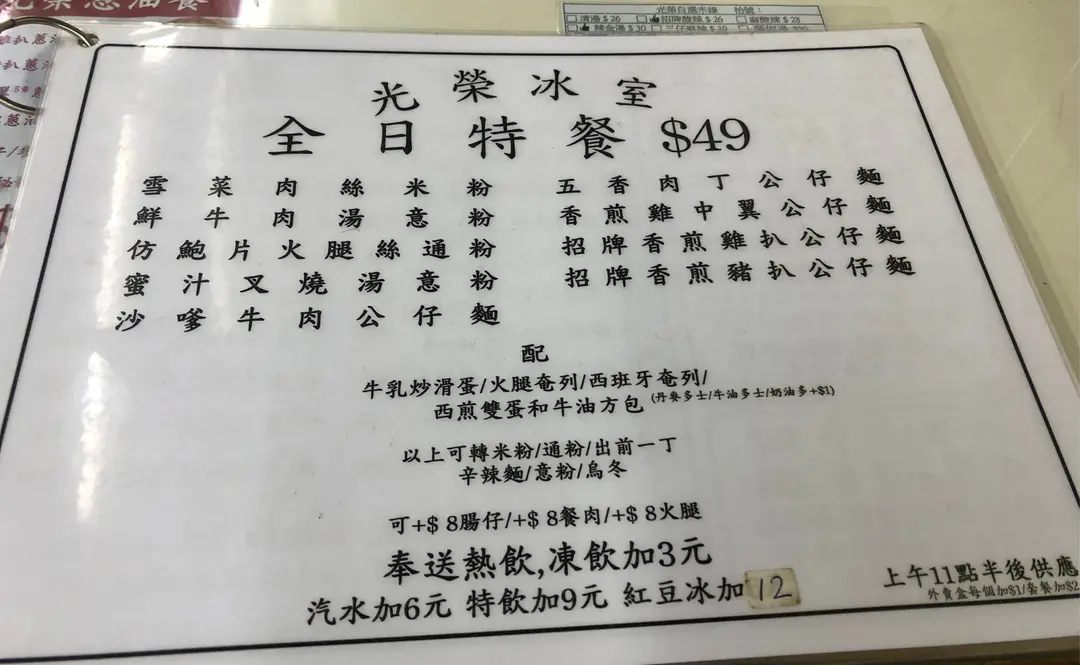 光榮自選米線
清湯$26 招牌酸辣$26 麻酸辣$28
光榮冰室
全日特餐 $49
雪菜肉絲米粉
鮮牛肉湯意粉
仿鮑片火腿絲通粉
蜜汁叉燒湯意粉
沙嗲牛肉公仔麵
五香肉丁公仔麵
香煎雞中翼公仔麵
招牌香煎雞扒公仔麵
招牌香煎豬扒公仔麵
配
牛乳炒滑蛋/火腿奄列/西班牙奄列/
西煎雙蛋和牛油方包 (丹麥多士/牛油多士/奶油多+$1)
以上可轉米粉/通粉/出前一丁
辛辣麵/意粉/烏冬
可+$ 8腸仔/+$ 8餐肉/+$ 8火腿
奉送熱飲,凍飲加3元
汽水加6元 特飲加9元 紅豆冰加12
上午11點半後供應
外賣盒每個加$1/套餐加$2